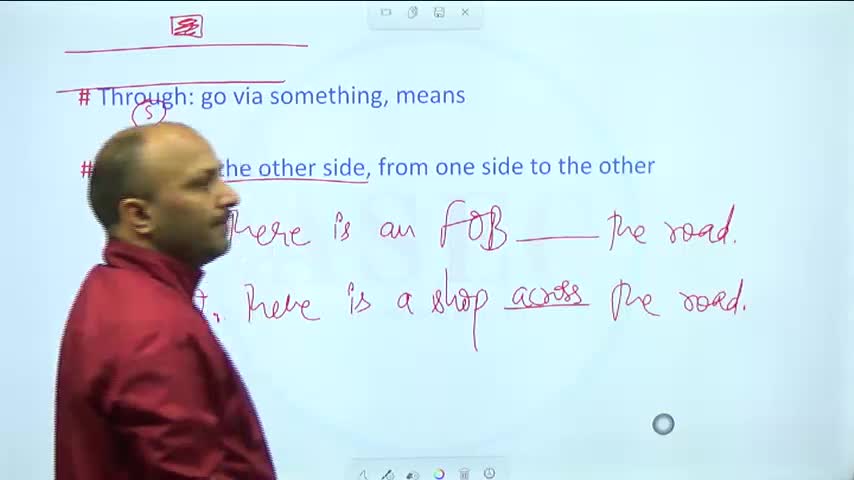 # Through: go via something, means
S
# the other side, from one side to the other
There is an FOB ____ the road.
There is a shop across the road.